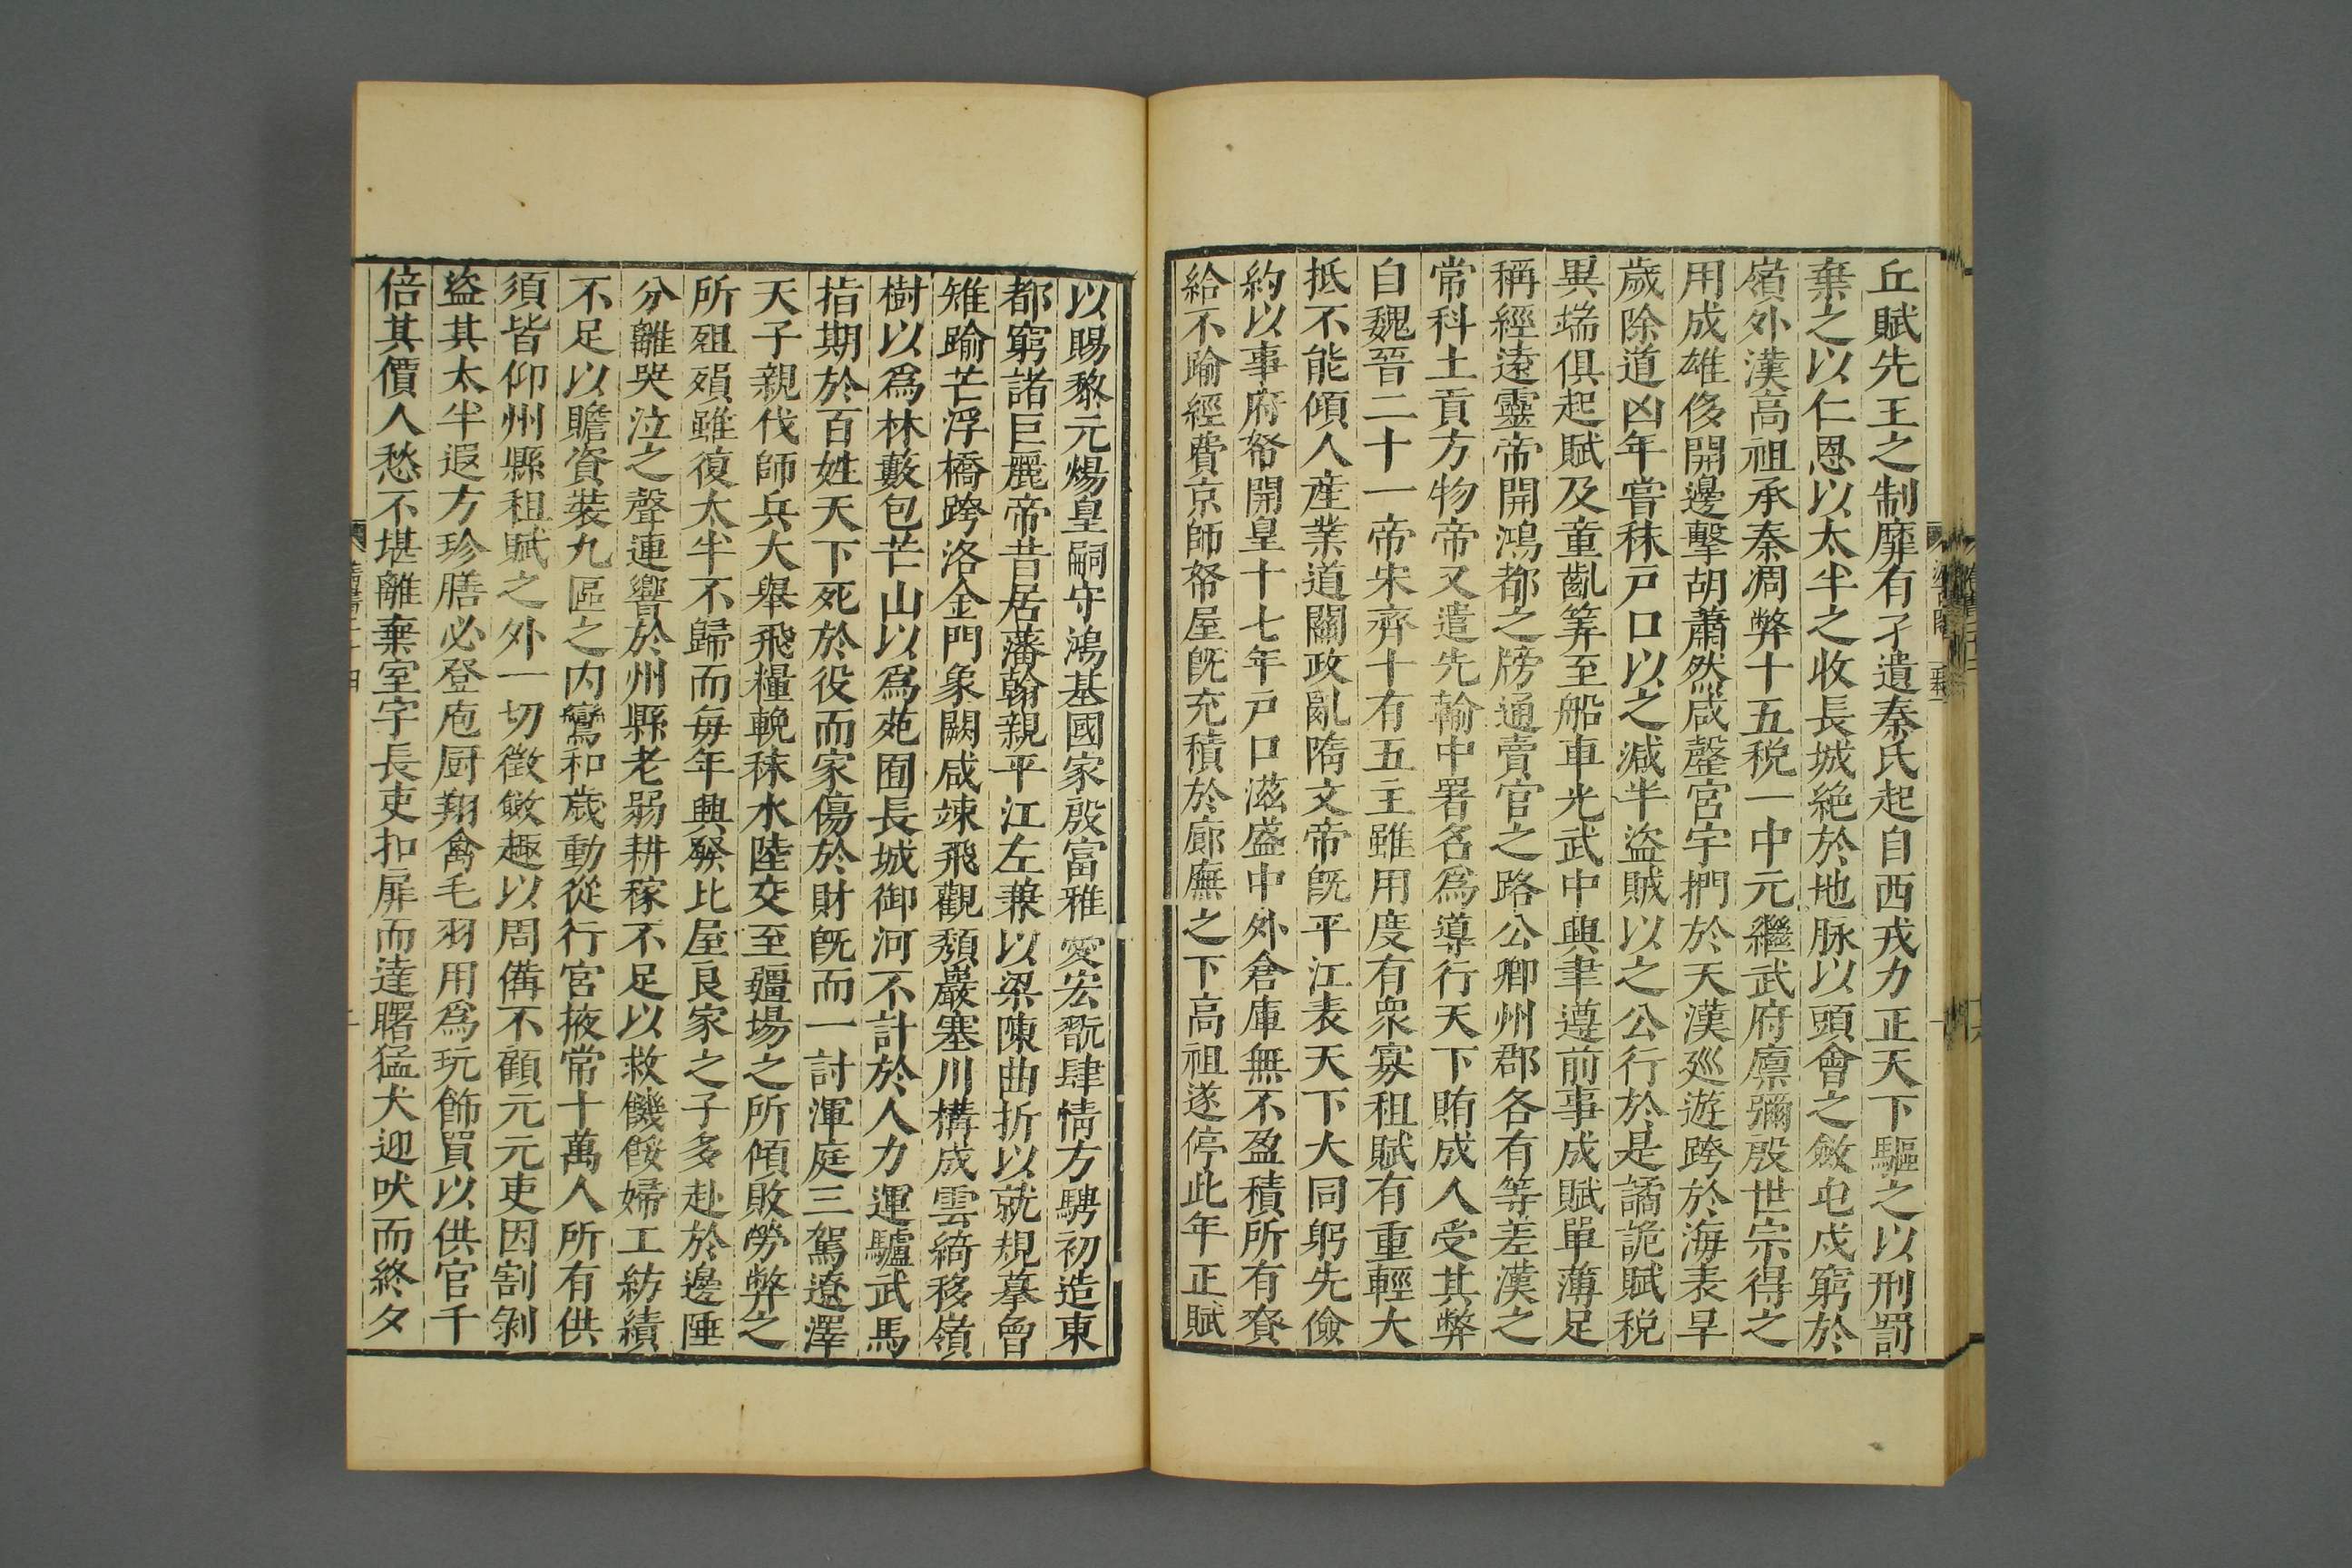 丘賦先王之制靡有孑遺秦氏起自西戎力正天下驅之以刑罰
棄之以仁恩以太半之收長城絶於地脉以頭會之斂屯戍窮於
嶺外漢高祖承秦凋弊十五税一中元繼武府廪彌殷世宗得之
用成雄侈開邊擊胡蕭然咸罄宮宇捫於天漢巡遊跨於海表旱
歲除道凶年嘗秣戸口以之減半盜賊以之公行於是譎詭賦税
異端俱起賦及童齓筭至船車光武中興聿遵前事成賦單薄足
稱經遠靈帝開鴻都之牓通賣官之路公卿州郡各有等差漢之
常科土貢方物帝又遣先輸中署名爲導行天下賄成人受其弊
自魏晉二十一帝宋齊十有五主雖用度有衆寡租賦有重輕大
抵不能傾人産業道闗政亂隋文帝旣平江表天下大同躬先儉
約以事府帑開皇十七年戸口滋盛中外倉庫無不盈積所有賚
給不踰經費京師帑屋旣充積於廊廡之下高祖遂停此年正賦
以賜黎元煬皇嗣守鴻基國家殷富雅愛宏翫肆情方騁初造東
都窮諸巨麗帝昔居藩翰親平江左兼以梁陳曲折以就規摹曾
雉踰芒浮橋跨洛金門象闕咸竦飛觀頽巖塞川構成雲綺移嶺
樹以爲林藪包芒山以爲苑囿長城御河不計於人力運驢武馬
指期於百姓天下死於役而家傷於財旣而一討渾庭三駕遼澤
天子親伐師兵大舉飛糧輓秣水陸交至疆場之所傾敗勞弊之
所殂殞雖復太半不歸而每年興發比屋良家之子多赴於邊陲
分離哭泣之聲連響於州縣老弱耕稼不足以救饑餒婦工紡績
不足以贍資裝九區之内鸞和歲動從行宮掖常十萬人所有供
須皆仰州縣租賦之外一切徵斂趣以周備不顧元元吏因割剝
盜其太半遐方珍膳必登庖厨翔禽毛羽用爲玩飾買以供官千
倍其價人愁不堪離棄室宇長吏扣扉而達曙猛犬迎吠而終夕